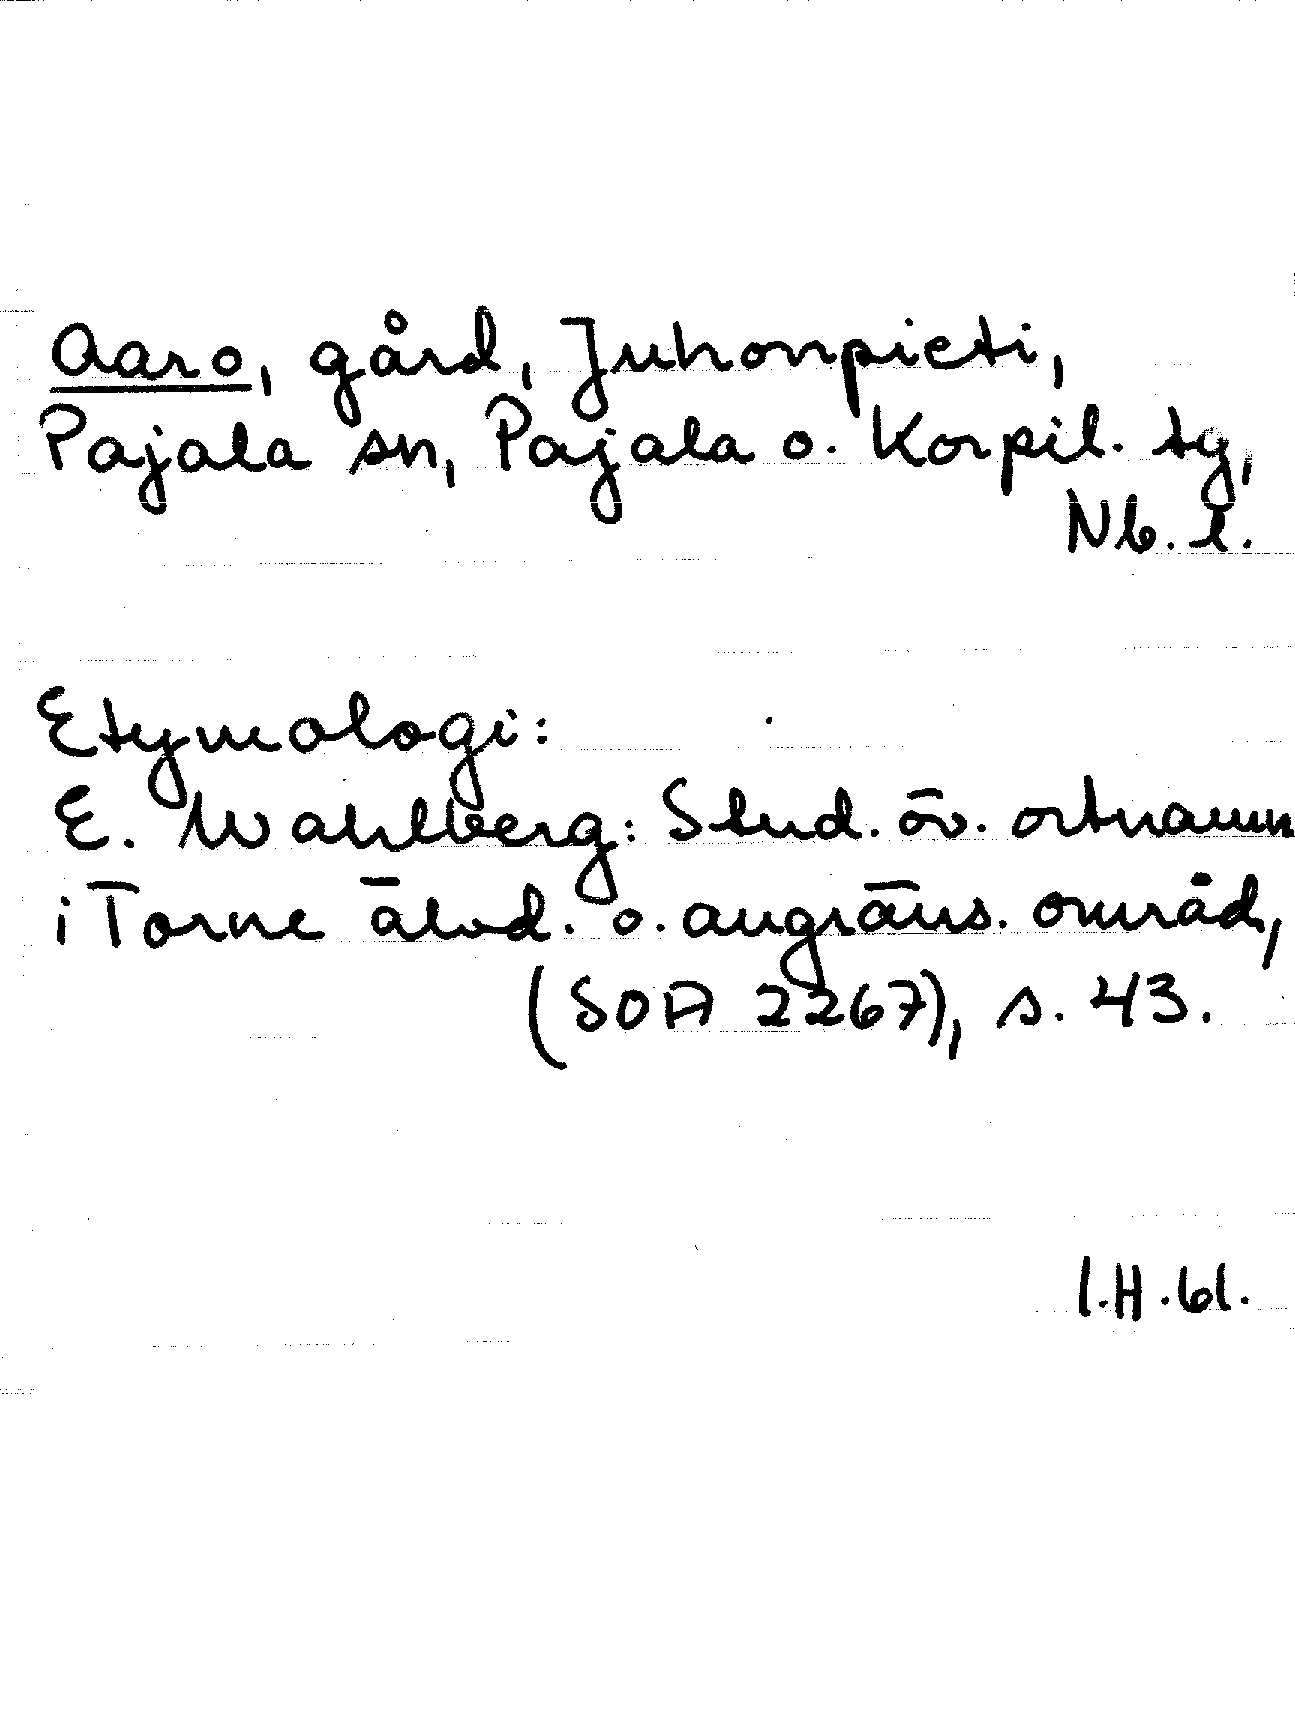 Aaro, gård, Juhonpieti,
Pajala sn, Pajala o. Korpil. tg,
Nb. l.
Etymologi:
E. Wahlberg: Stud. öv. ortnamn
i Torne älvd. o. angräns. områd,
(SOA 2267), s. 43.
I.H.61.